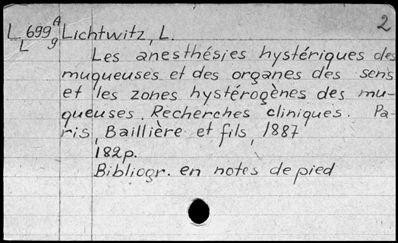 L699 A Lichtwitz, L. 2
L 9 Les anesthésies hystériques des
muqueuses et des organes des sens
et les zones hystérogènes des mu-
queuses. Recherches cliniques. Pa-
ris, Baillière et fils, 1887
182p.
Bibliogr. en notes de pied